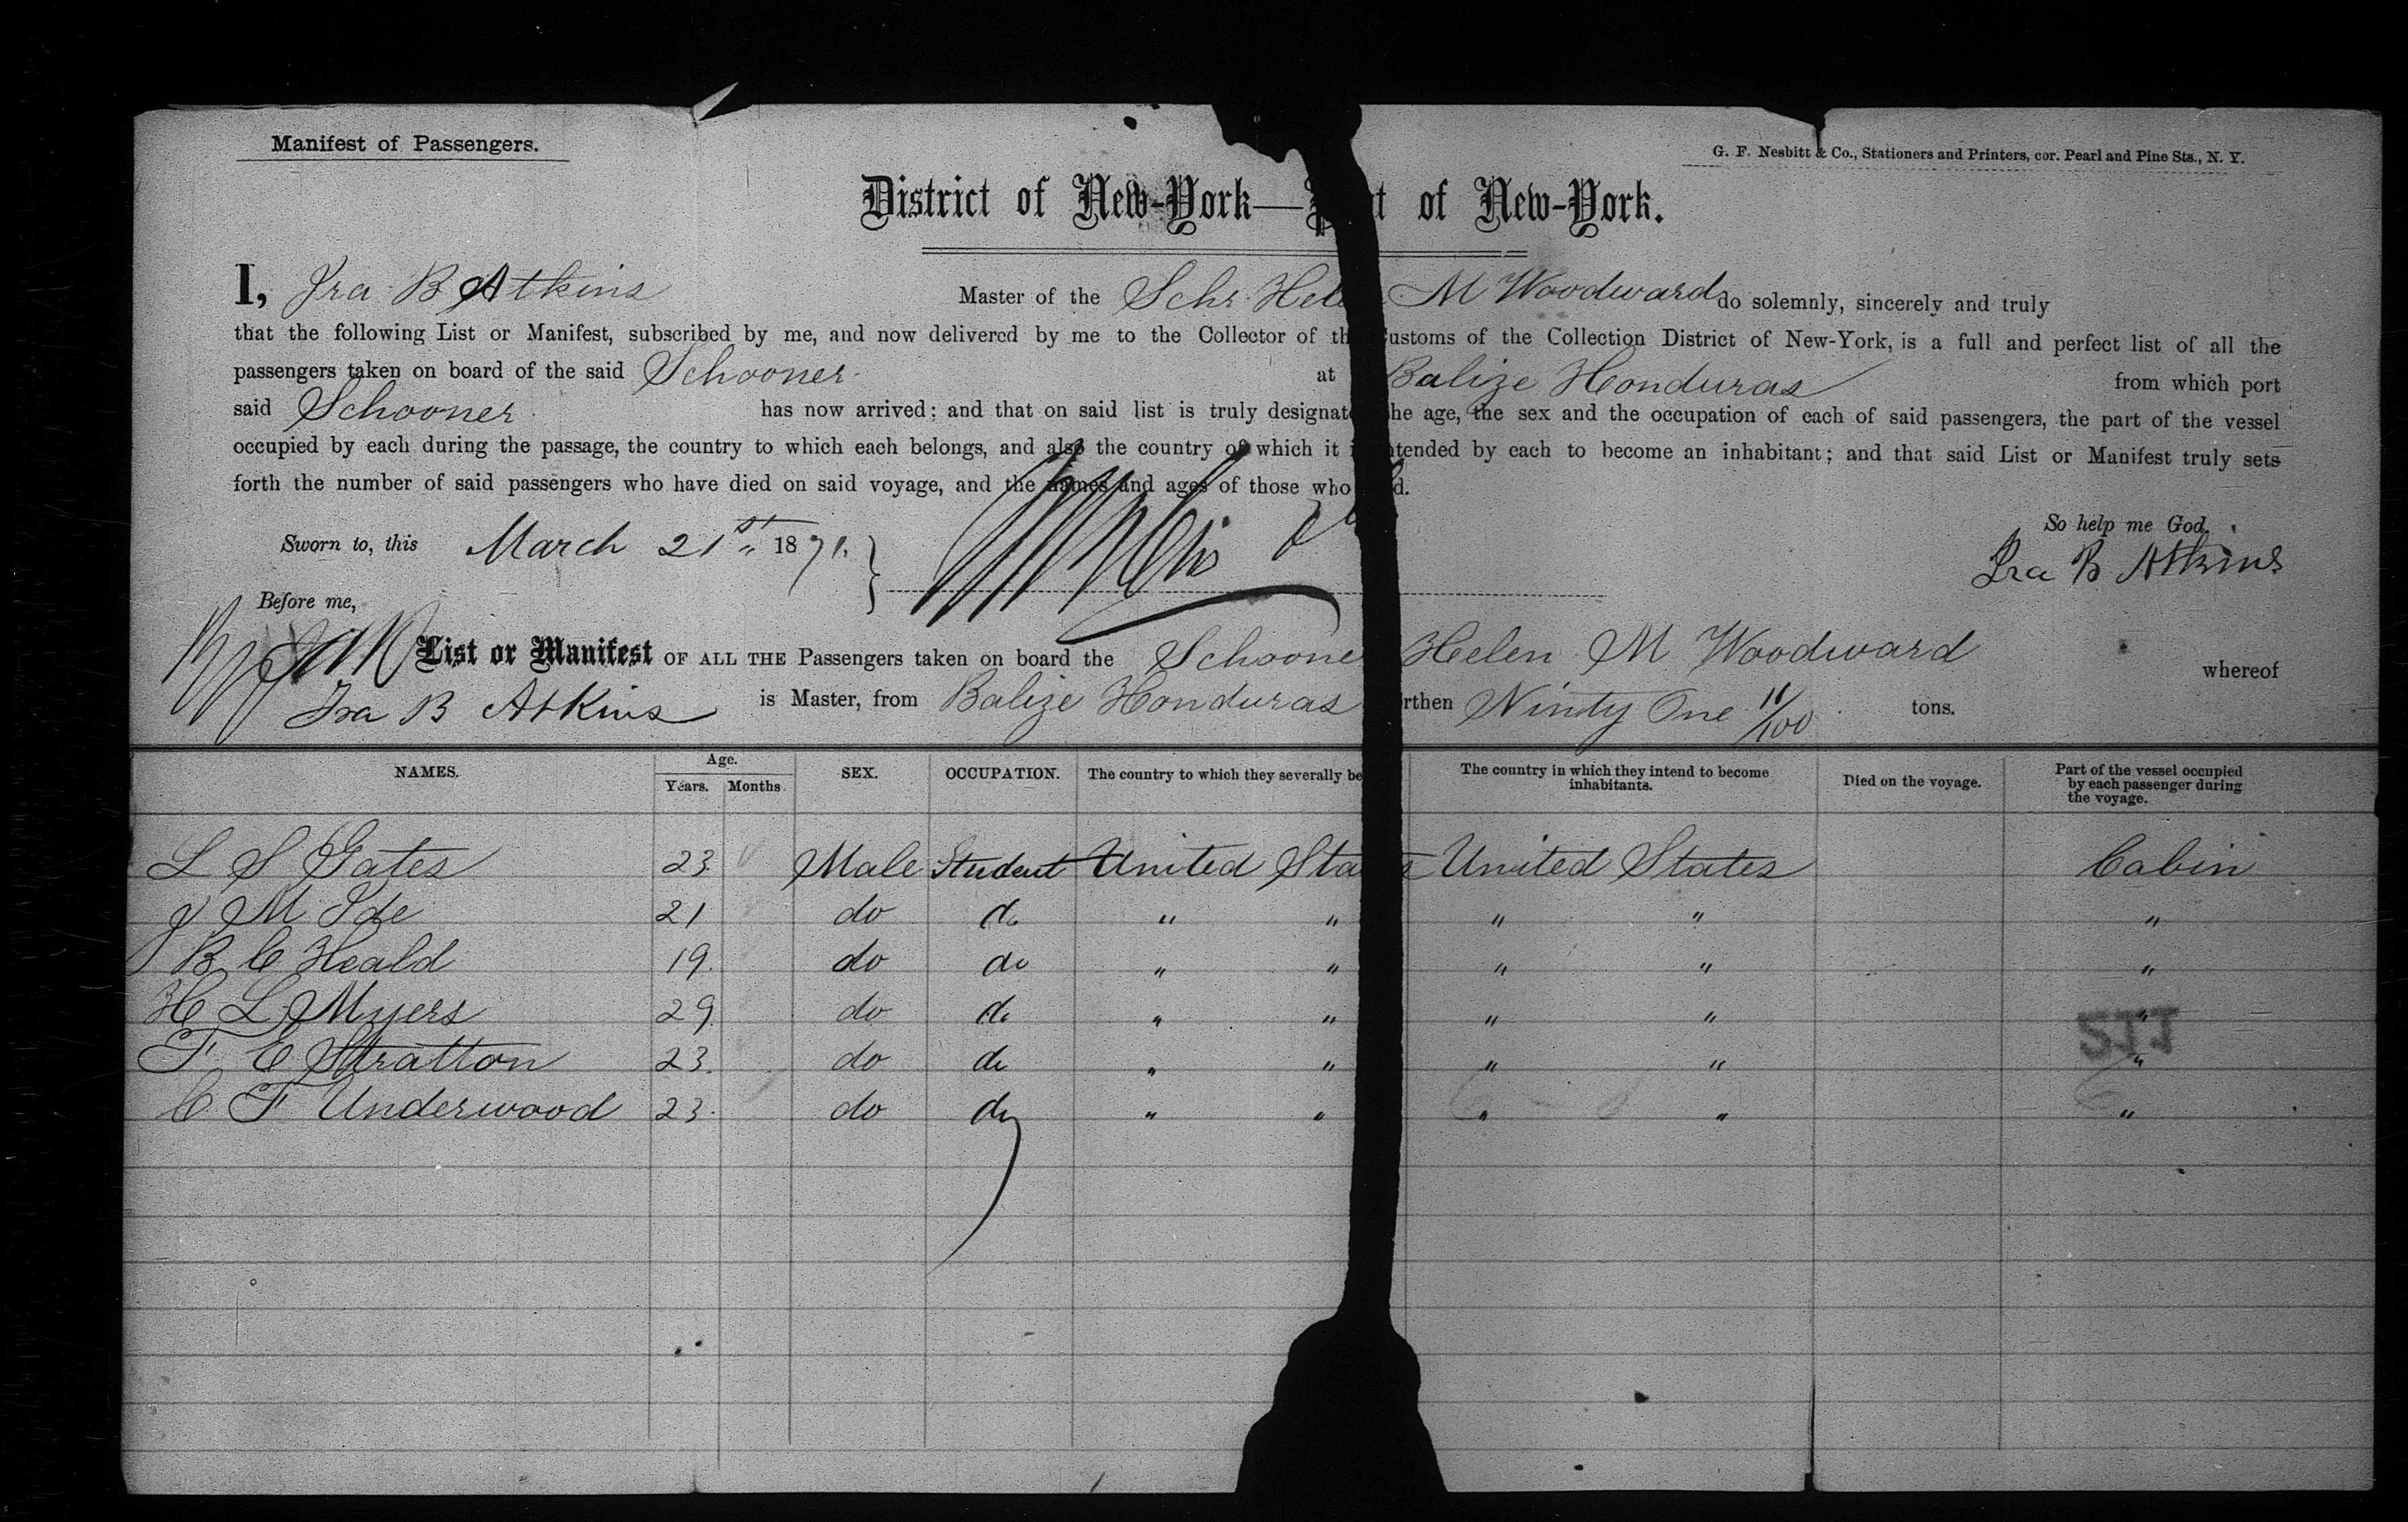 Manifest of Passengers.
G. F. Nesbitt & Co., Stationers and Printers, cor. Pearl and Pine Sts., N. Y.
District of New-York—P t of New-York.
I, Ira B Atkins Master of the Schr Hele M Woodward do solemnly, sincerely and truly
that the following List or Manifest, subscribed by me, and now delivered by me to the Collector of th ustoms of the Collection District of New-York, is a full and perfect list of all the
passengers taken on board of the said Schooner at Balize Honduras from which port
said Schooner has now arrived: and that on said list is truly designate he age, the sex and the occupation of each of said passengers, the part of the vessel
occupied by each during the passage, the country to which each belongs, and also the country of which it i ntended by each to become an inhabitant; and that said List or Manifest truly sets
forth the number of said passengers who have died on said voyage, and the names and ages of those who d.
So help me God,
Sworn to, this March 21st 1871.
Ira B Atkins
Before me,
List or Manifest OF ALL THE Passengers taken on board the Schoone Helen M Woodward whereof
Ira B Atkins is Master, from Balize Honduras rthen Ninty One 11/100 tons.
NAMES. Age. Years. Months SEX. OCCUPATION. The country to which they severally be The country in which they intend to become inhabitants. Died on the voyage. Part of the vessel occupied by each passenger during the voyage.
L S Gates 23 Male Student United Sta s United States Cabin
J M Ide 21 do do " " " " "
B C Heald 19. do do " " " " "
H L Myers 29. do do " " " " "
F E Stratton 23. do do " " " " "
C F Underwood 23. do do " " " " "
STT